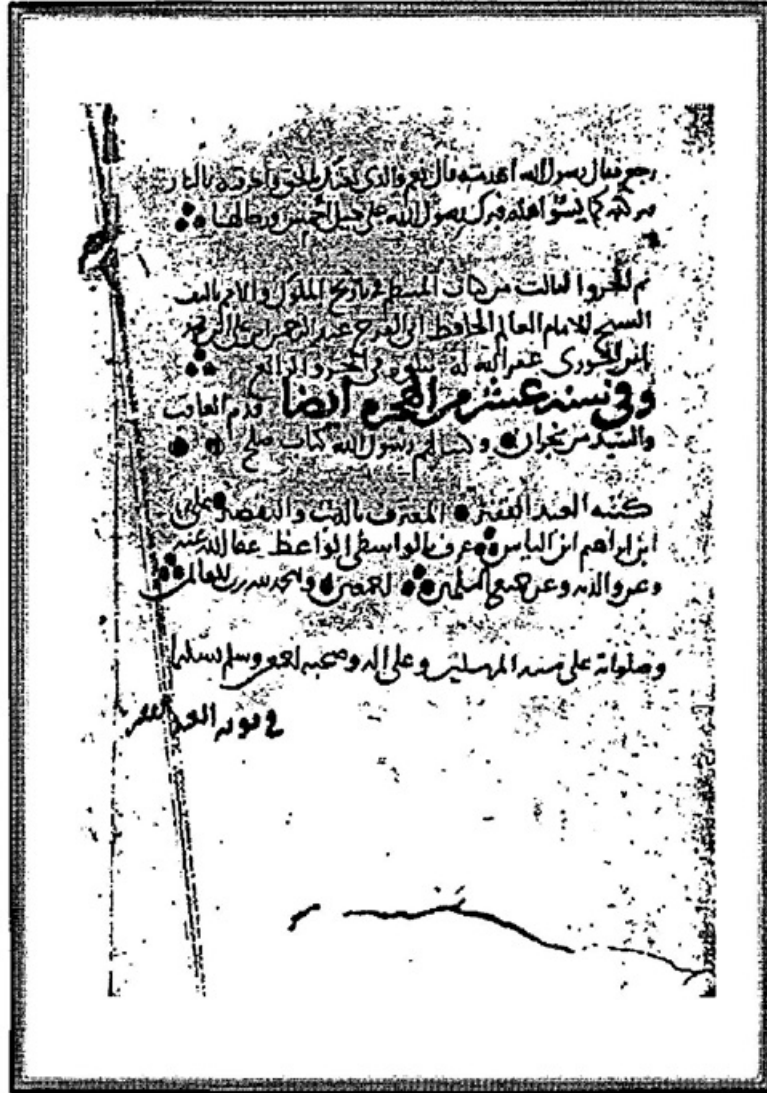 رجع فقال رسول الله اهدمته قال نعم والذي بعثك بالحق واحرقته بالنار
فتركته كما يسوا اهله فبرك رسول الله على خيل احمس ورجالها
تم الجزو الثالث من كتاب المنتظم في تاريخ الملوك والامم تاليف
الشيخ الامام العالم الحافظ ابي الفرج عبد الرحمن ابن علي
ابن الجوزي غفر الله له يتلوه في الجزو الرابع
وفي سنه عشر من الهجره ايضا قدم العاقب
والسيد من نجران وكتب لهم رسول الله كتاب صلح
كتبه العبد الفقير المعترف بالذنب والتقصير علي
ابن ابراهم ابن الياس عرف بالواسطي الواعظ عفا الله عنه
وعن والديه وعن جميع المسلمين اجمعين والحمد لله رب العالمين
وصلواته على سيد المرسلين وعلى اله وصحبه اجمعين وسلم تسليما
في نوبه العبد الفقير